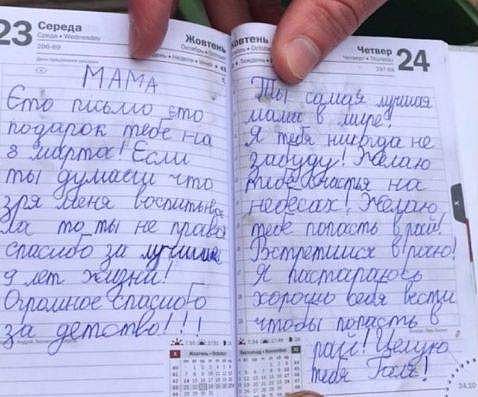 23
Середа
Среда • Wednesday
296-69
Жовтень
МАМА
Єто письмо єто
подарок тебе на
8 марта! Если
ты думаєш что
зря меня воспитыва
ла то ты не права
спасибо за лучшие
9 лет жизни!
Огромное спасибо
за детство!!!
Жовтень • October
Жовтень
Четвер
24
Четверг • Thursday
297-68
Ты самая лучшая
мама в мире.
Я тебя никогда не
забуду! Желаю
тебе счастья на
небесах! Желаю
тебе попасть в рай!
Встретимся в раю!
Я постараюсь
хорошо себя вести
чтобы попасть в
рай! Целую
тебя Галя!
24.10